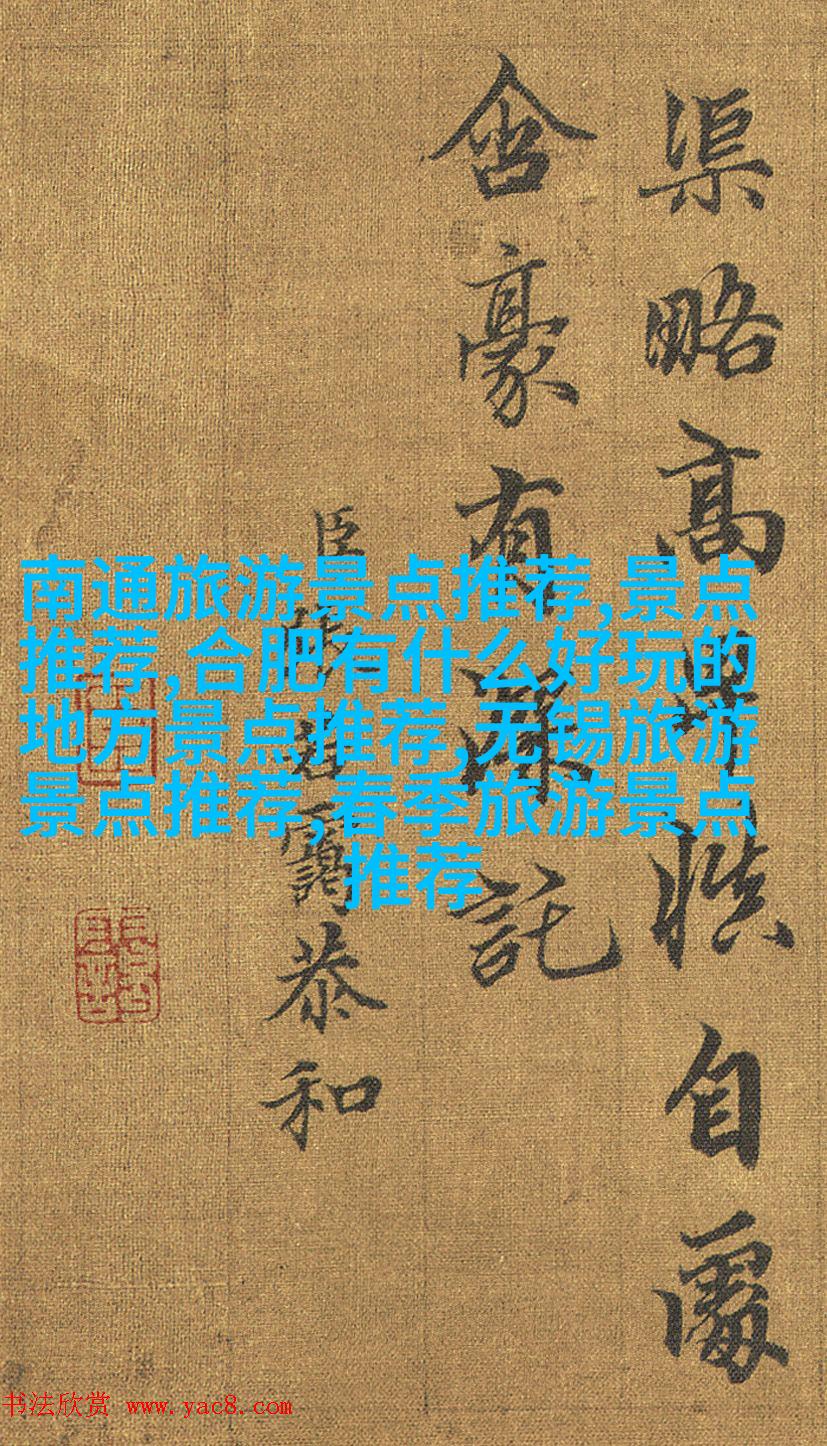 渠略高
自處
含豪有
託
臣
恭和
南通旅游景点推荐,景点
推荐,合肥有什么好玩的
地方景点推荐,无锡旅游
景点推荐,春季旅游景点
推荐
书法欣赏 www.yac8.com